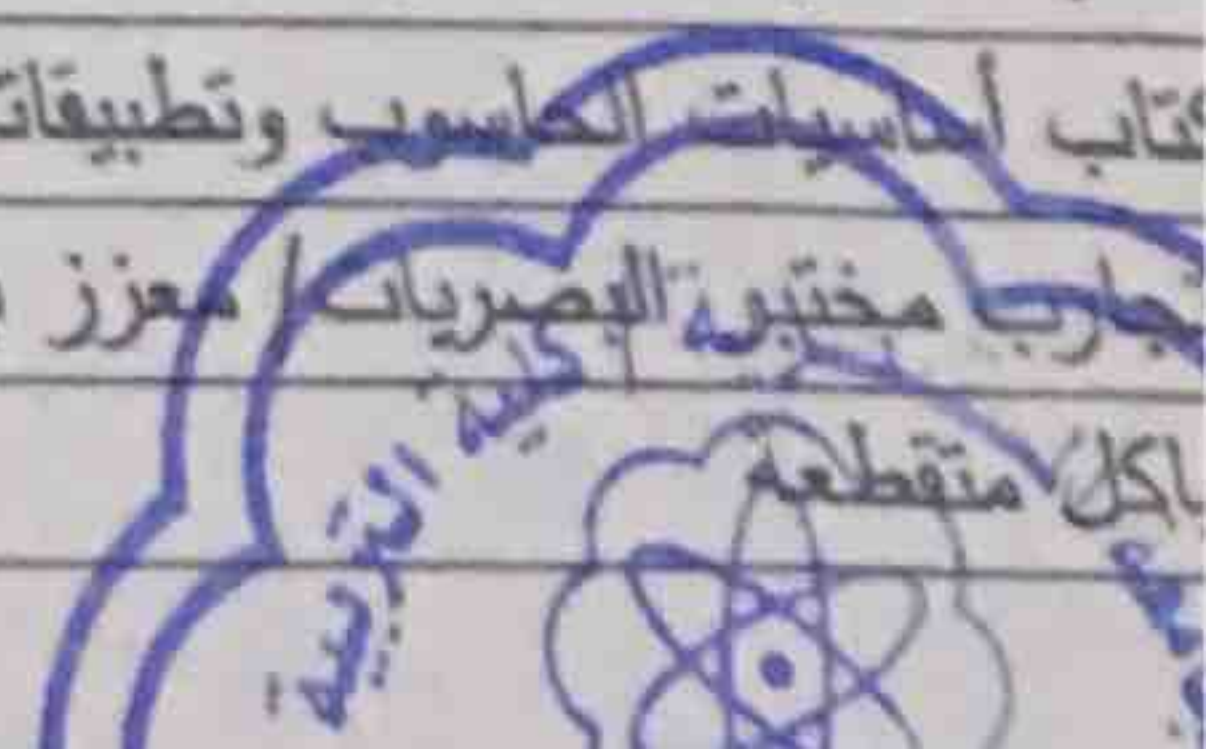 كتاب أساسيات الحاسوب وتطبيقات
تجارب مختبرية البصريات / معزز
متقطعة
كلية التربية